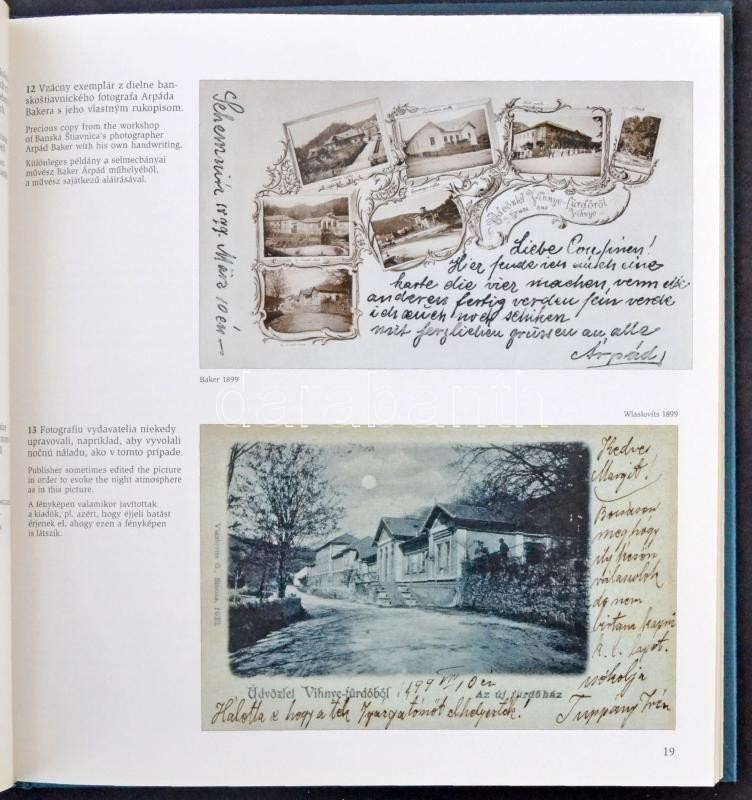 12 Vzácny exemplár z dielne ban-
skoštiavnického fotografa Arpáda
Bakera s jeho vlastným rukopisom.
Precious copy from the workshop
of Banská Štiavnica's photographer
Arpád Baker with his own handwriting.
Különleges példány a selmecbányai
művész Baker Árpád műhelyéből,
a művész sajátkezű aláírásával.
1899 10 én
Üdvözlet Vihnye-fürdőről
Gruss aus Vihnye
Liebe Cousinen!
Hier sende ich euch eine
karte die vier machen, wenn die
anderen fertig werden sein werde
ich euch noch schiken
mit herzlichen grüssen an alle
Árpád
Baker 1899
darabanth
Wlaslovits 1899
13 Fotografiu vydavatelia niekedy
upravovali, napríklad, aby vyvolali
nočnú náladu, ako v tomto prípade.
Publisher sometimes edited the picture
in order to evoke the night atmosphere
as in this picture.
A fényképen valamikor javítottak
a kiadók, pl. azért, hogy éjjeli hatást
érjenek el, ahogy ezen a fényképen
is látszik.
Kedves
Margit.
Bocsásson
meg hogy
ily késön
válaszolok
de nem
birtam kapni
k. l. lapot.
Üdvözlet Vihnye-fürdőből
899 VII/10 én
Az új fürdőház
Tuppány Irén
19